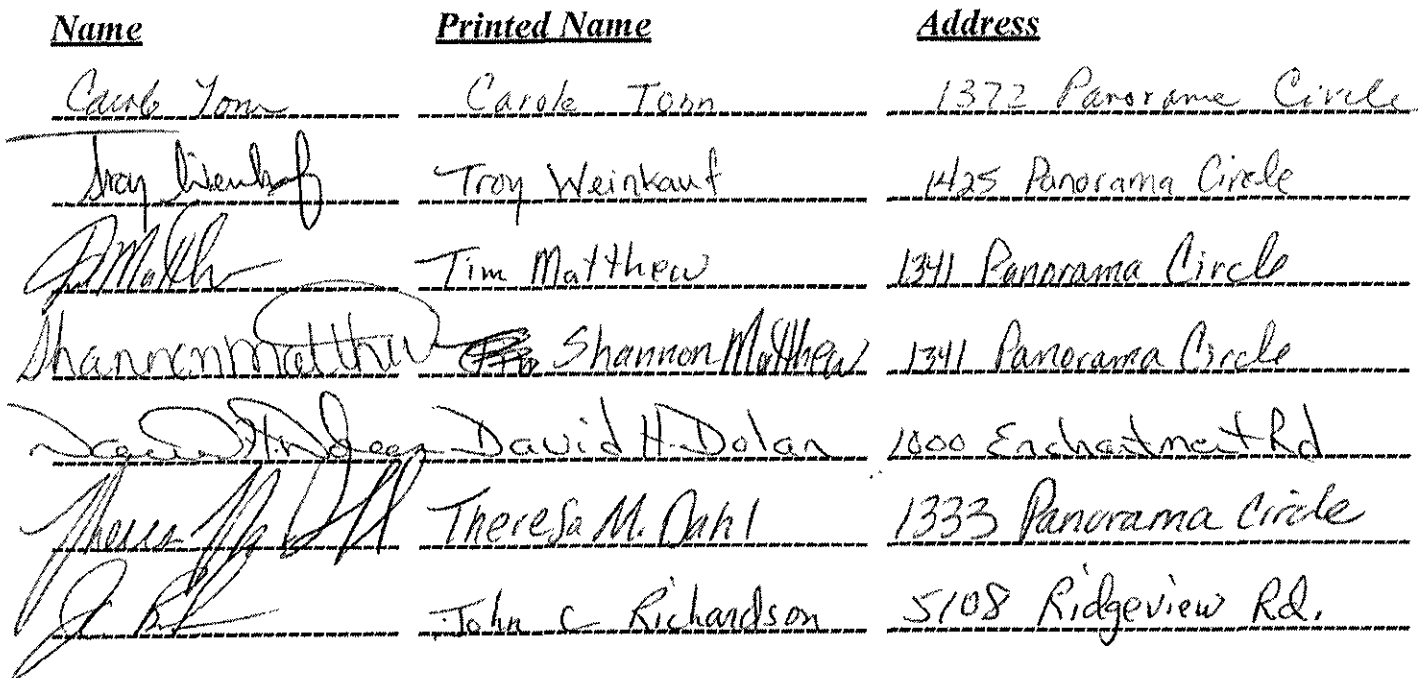 Name Printed Name Address
Carole Tonn 1372 Panorama Circle
Troy Weinkauf 1425 Panorama Circle
Tim Matthew 1341 Panorama Circle
Shannon Matthew Shannon Matthew 1341 Panorama Circle
David H. Dolan 1000 Enchantment Rd
Theresa M. Dahl 1333 Panorama Circle
John C Richardson 5108 Ridgeview Rd.